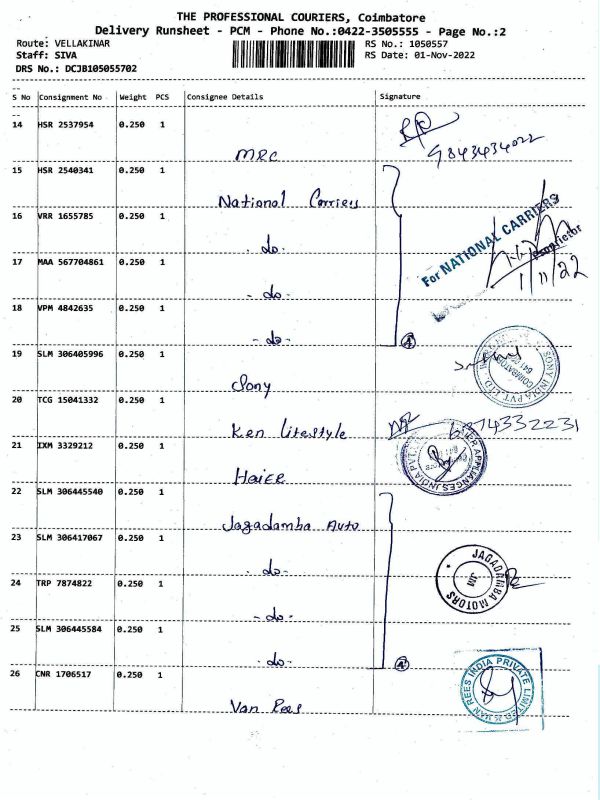 THE PROFESSIONAL COURIERS, Coimbatore
Delivery Runsheet - PCM - Phone No.:0422-3505555 - Page No.:2
Route: VELLAKINAR RS No.: 1050557
Staff: SIVA RS Date: 01-Nov-2022
DRS No.: DCJB105055702
S No Consignment No Weight PCS Consignee Details Signature
14 HSR 2537954 0.250 1
MRC 9843434022
15 HSR 2540341 0.250 1
National Carriers
16 VRR 1655785 0.250 1
- do -
For NATIONAL CARRIERS
Proprietor
1/11/22
17 MAA 567704861 0.250 1
- do -
18 VPM 4842635 0.250 1
- do - 4
19 SLM 306405996 0.250 1
Sony
SONY INDIA PVT. LTD.
COIMBATORE
20 TCG 15041332 0.250 1
Ken Lifestyle
21 IXM 3329212 0.250 1
Haier
HAIER APPLIANCES INDIA PVT.
22 SLM 306445540 0.250 1
Jagadamba Auto
23 SLM 306417067 0.250 1
- do -
JAGADAMBA MOTORS
JM
24 TRP 7874822 0.250 1
- do -
25 SLM 306445584 0.250 1
- do - 4
26 CNR 1706517 0.250 1
Van Rees
VAN REES INDIA PRIVATE LIMITED